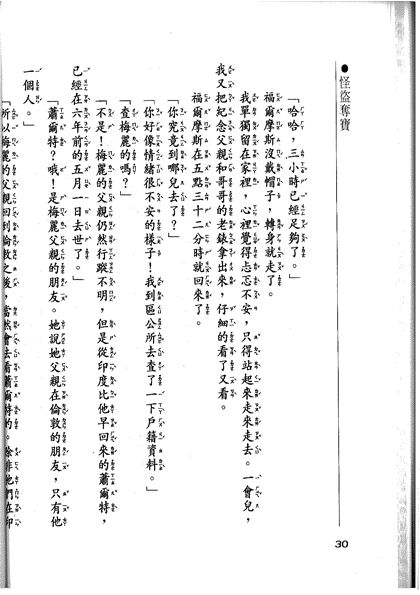 ●怪盜奪寶
「哈哈，三小時已經足夠了。」
福爾摩斯沒戴帽子，轉身就走了。
我單獨留在家裡，心裡覺得忐忑不安，只得站起來走來走去。一會兒，
我又把紀念父親和哥哥的老錶拿出來，仔細的看了又看。
福爾摩斯在五點三十二分時就回來了。
「你究竟到哪兒去了？」
「你好像情緒很不安的樣子！我到區公所去查了一下戶籍資料。」
「查梅麗的嗎？」
「不是！梅麗的父親仍然行蹤不明，但是從印度比他早回來的蕭爾特，
已經在六年前的五月一日去世了。」
「蕭爾特？哦！是梅麗父親的朋友。她說她父親在倫敦的朋友，只有他
一個人。」
「所以梅麗的父親回到倫敦之後，當然會去看蕭爾特的。除非他們在印
30